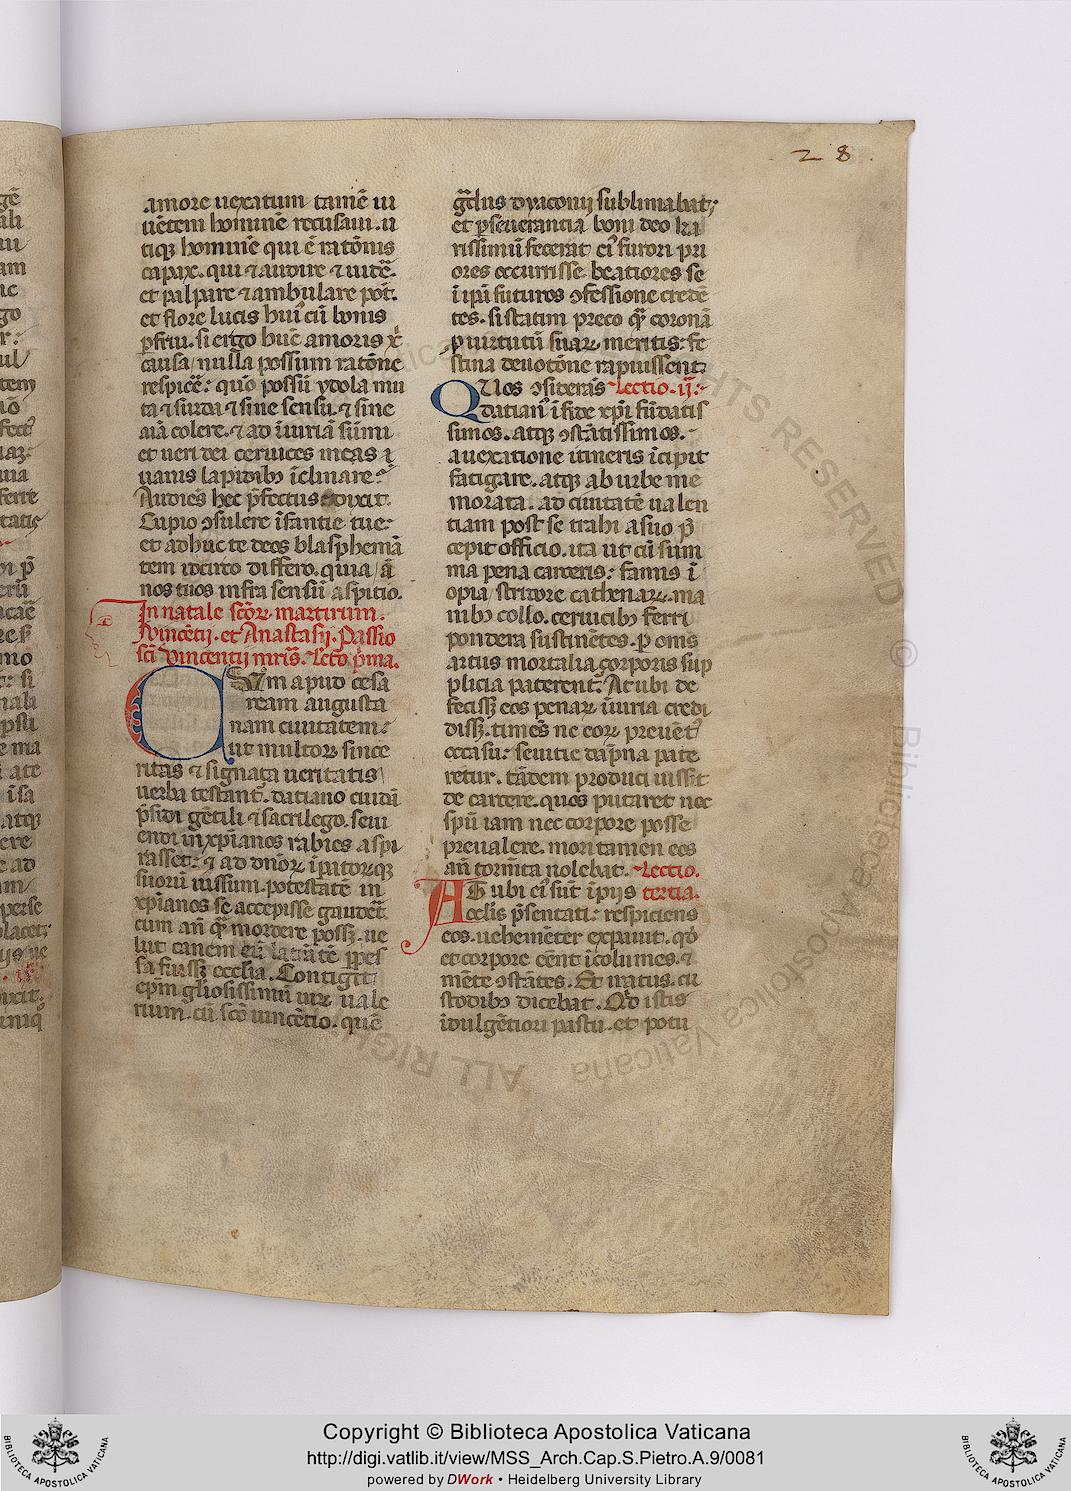 28
amore uexatum tamē ui
uētem hominē recusaui. u
tiqꝫ hominē qui ē ratōnis
capax. qui ⁊ audire ⁊ uidē.
et palpare ⁊ ambulare pōt.
et flore lucis huiꝰ cū bonis
ꝑfrui. si ergo huiꝰ amoris
causa nulla possum ratōne
respicē: quō possū ydola mu
ta ⁊ surda ⁊ sine sensu. ⁊ sine
aīa colere. ⁊ ad iniuriā sūmi
et ueri dei ceruices meas ī
uanis lapidibꝰ īclinare
Audiēs hec p̄fectus dixit.
Cupio ꝯsulere īfantie tue:
et adhuc te deos blasphemā
tem idcirco differo. quia ā
nos tuos infra sensū aspitio.
In natale scōꝝ martirum.
Vincētij. et Anastasij. Passio
sc̄i Vincentij mr̄is. Lecto p̄ma.
Cum apud cesa
ream augusta
nam ciuitatem:
ut multoꝝ since
ritas ⁊ signata ueritatis
uerba testant̄. datiano cuidā
p̄sidi gētili ⁊ sacrilego. seui
endi in xp̄ianos rabies aspi
rasset: ⁊ ad dn̄oꝝ īpatoꝝqꝫ
suorū iussum. potestatē in
xp̄ianos se accepisse gaudēt.
cum an̄ q̄ mordere possꝫ. ue
lut canem eū latrātē
sa fuissꝫ ecclia. Contigit
ep̄m gl̄iosissimū uiꝝ uale
rium. cū scō uincētio. quē
gr̄dus dyaconij sublimabat;
et ꝑseuerantia boni deo ka
rissimū fecerat eiꝰ furori pri
ores occurrisse. beatiores se
ī ip̄i futuros ꝯfessione credē
tes. si statim preco q̄ coronā
ꝑ uirtutū suaꝝ meritis: fe
stina deuotōne rapuissent.
QUos ꝯsiderās Lectio. ij.
datianꝰ ī fide xp̄i fūdatis
simos. atqꝫ ꝯstātissimos.
a uexatione itineris īcipit
fatigare. atqꝫ ab urbe me
morata. ad ciuitatē ualen
tiam post se trahi a suo p̄
cepit officio. ita ut cū sum
ma pena carceris: famis ī
opia stridore cathenaꝝ. ma
nibꝰ collo. ceruicibꝰ ferri
pondera sustinētes. ꝑ om̄s
artus mortalia corporis sup
plicia paterent̄. At ubi de
fecissꝫ eos penaꝝ iniuria credi
dissꝫ. timēs ne eoꝝ preuēt
occasu: seuitie dāpna pate
retur. tādem produci iussit
de carcere. quos putaret nec
sp̄u iam nec corpore posse
preualere. mori tamen eos
an̄ tormēta nolebat. Lectio.
AT ubi eiꝰ sūt īpijs tertia.
oclis p̄sentati: respiciens
eos. uehemēter expauit. qd̓
et corpore eēnt īcolumes. ⁊
mēte ꝯstātes. Et iratus. cu
stodibꝰ dicebat. Qd̓ istis
īdulgētiori pastu. et potu
Copyright © Biblioteca Apostolica Vaticana
http://digi.vatlib.it/view/MSS_Arch.Cap.S.Pietro.A.9/0081
powered by DWork • Heidelberg University Library